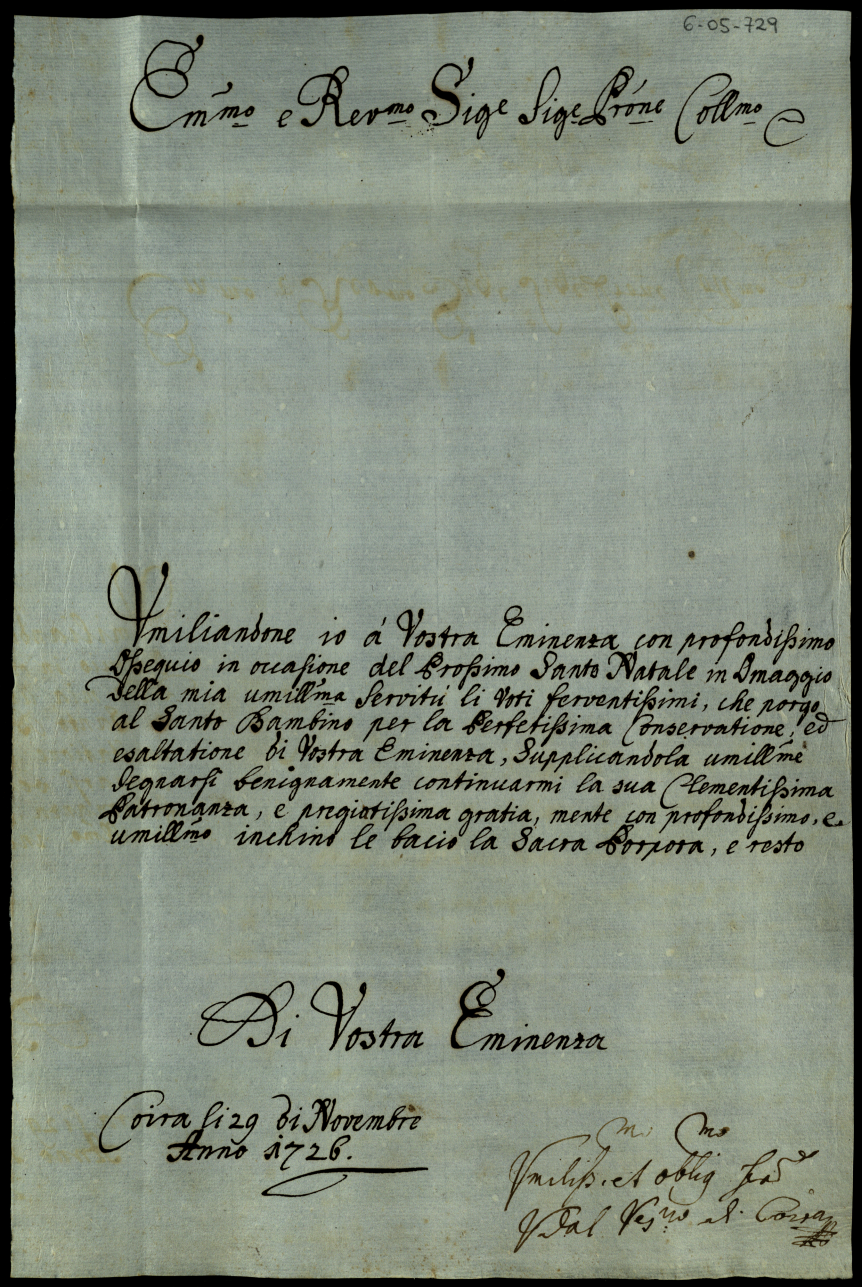 6-05-729
Em̃mo e Revmo Sige Sige Prõne Collmo
Vmiliandone io á Vostra Eminenza con profondißimo
Oßequio in occasione del Proßimo Santo Natale in Omaggio
della mia umill̃ma Servitú li Voti ferventißimi, che porgo
al Santo Bambino per la Perfetißima Conservatione, ed
esaltatione di Vostra Eminenza, Supplicandola umill̃me
degnarsi benignamente continuarmi la sua Clementißima
Patronanza, e pregiatißima gratia, mente con profondißimo, e
umill̃mo inchino le bacio la Sacra Porpora, e resto
Di Vostra Eminenza
Coira li 29 di Novembre
Anno 1726.
mo mo
Vmiliß. et oblig
Vdal Vesvo di Coira